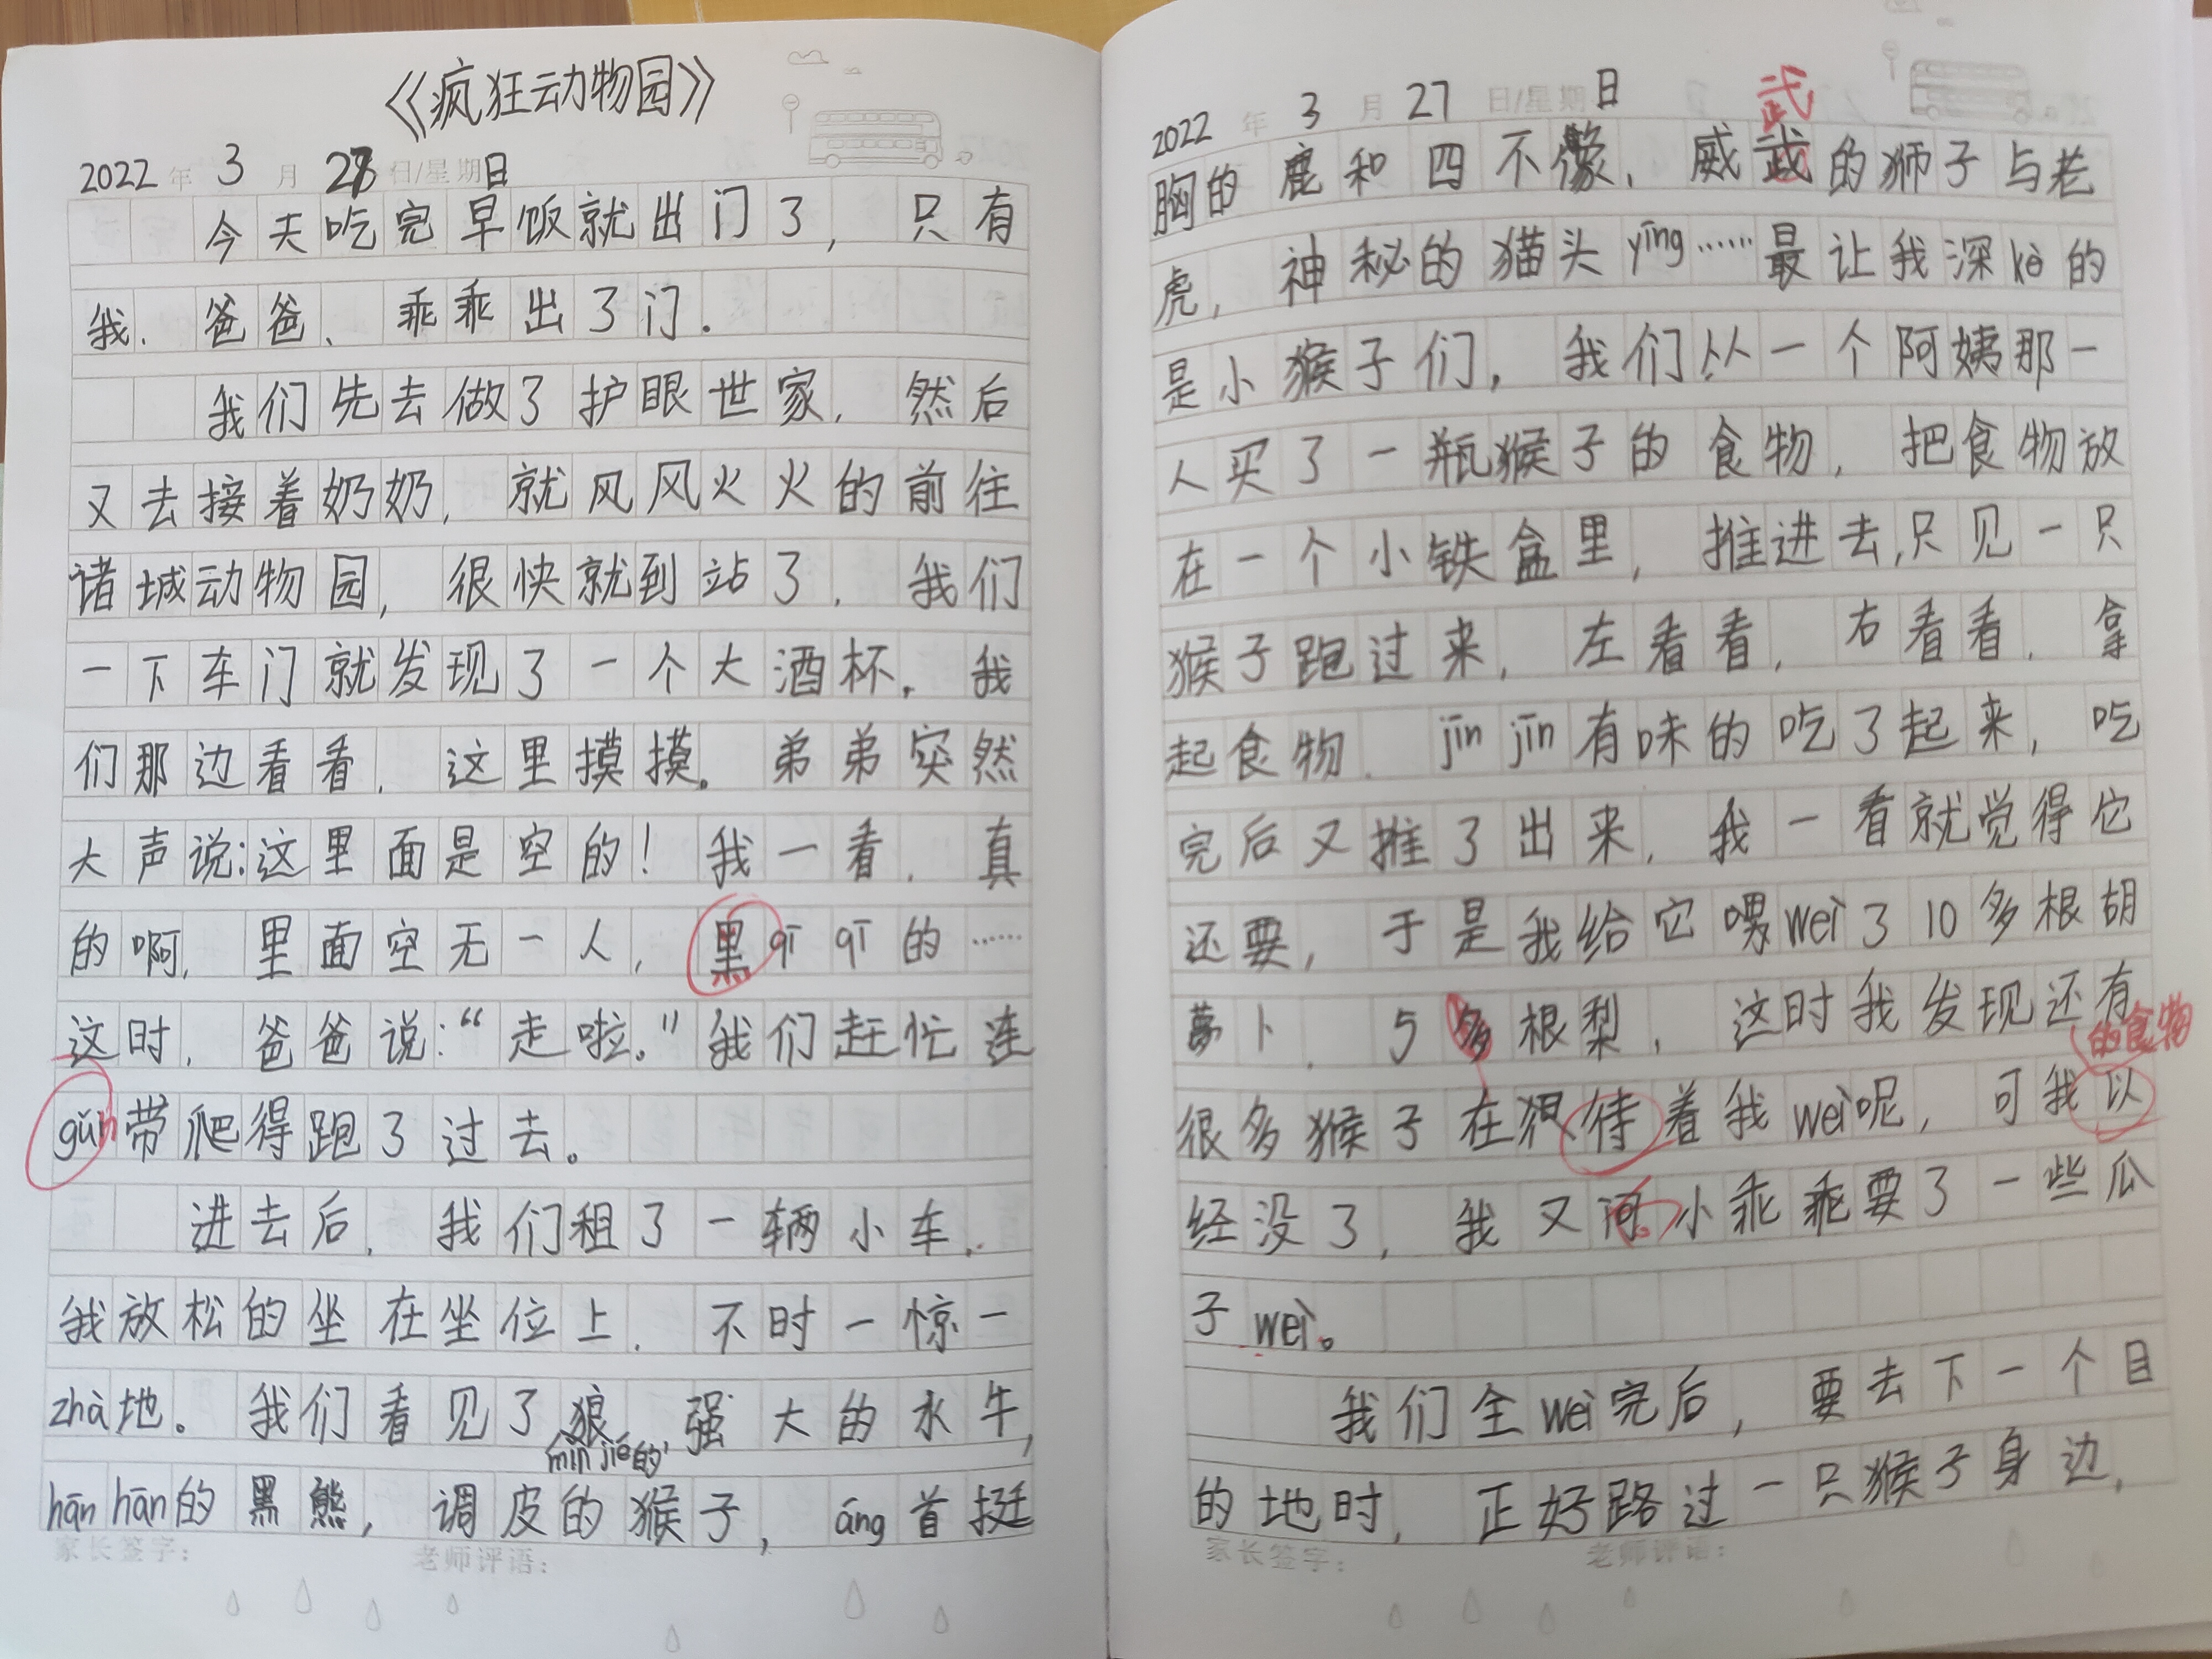 《疯狂动物园》
2022年 3月 27日/星期日
今天吃完早饭就出门了，只有
我、爸爸、乖乖出了门.
我们先去做了护眼世家，然后
又去接着奶奶，就风风火火的前往
诸城动物园，很快就到站了，我们
一下车门就发现了一个大酒杯，我
们那边看看，这里摸摸。弟弟突然
大声说:这里面是空的！我一看，真
的啊，里面空无一人，黑qī qī的……
这时，爸爸说:“走啦。”我们赶忙连
gǔn带爬得跑了过去。
进去后，我们租了一辆小车，
我放松的坐在坐位上，不时一惊一
zhà地。我们看见了狼，强大的水牛，
mǐn jié的
hān hān的黑熊，调皮的猴子，áng首挺
家长签字:
老师评语:
2022年 3月 27日/星期日
武
胸的鹿和四不像，威武的狮子与老
虎，神秘的猫头yīng……最让我深kè的
是小猴子们，我们从一个阿姨那一
人买了一瓶猴子的食物，把食物放
在一个小铁盒里，推进去,只见一只
猴子跑过来，左看看，右看看，拿
起食物，jīn jīn有味的吃了起来，吃
完后又推了出来，我一看就觉得它
还要，于是我给它喂wei了10多根胡
萝卜，5多根梨，这时我发现还有
的食物
很多猴子在待着我wei呢，可我以
经没了，我又问小乖乖要了一些瓜
子wei。
我们全wei完后，要去下一个目
的地时，正好路过一只猴子身边，
家长签字:
老师评语: